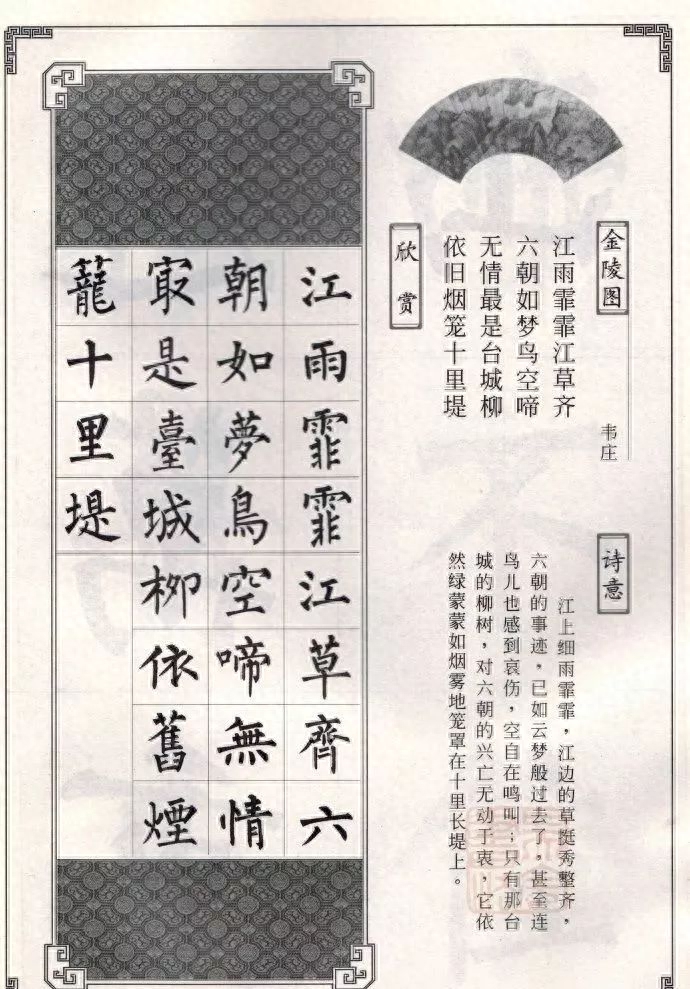 金陵图
江雨霏霏江草齐
六朝如梦鸟空啼
无情最是台城柳
依旧烟笼十里堤
韦庄
欣赏
诗意
江上细雨霏霏，江边的草挺秀整齐，
六朝的事迹，已如云梦般过去了，甚至连
鸟儿也感到哀伤，空自在鸣叫；只有那台
城的柳树，对六朝的兴亡无动于衷，它依
然绿蒙蒙如烟雾地笼罩在十里长堤上。
江雨霏霏江草齊六
朝如夢鳥空啼無情
冣是臺城柳依舊煙
籠十里堤